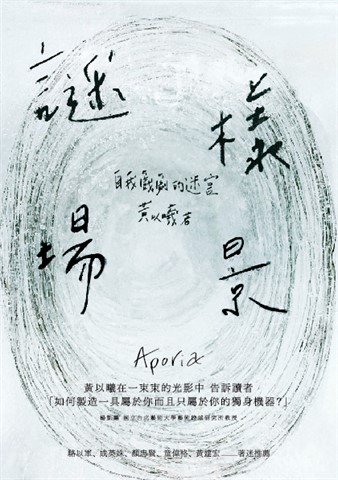 謎樣
場景
自我戲劇的迷宮
黃以曦著
Aporia
黃以曦在一束束的光影中 告訴讀者
「如何製造一具屬於你而且只屬於你的獨身機器？」
楊凱麟 國立台北藝術大學藝術跨域研究所教授
駱以軍、成英姝、顏忠賢、童偉格、黃建宏──著迷推薦